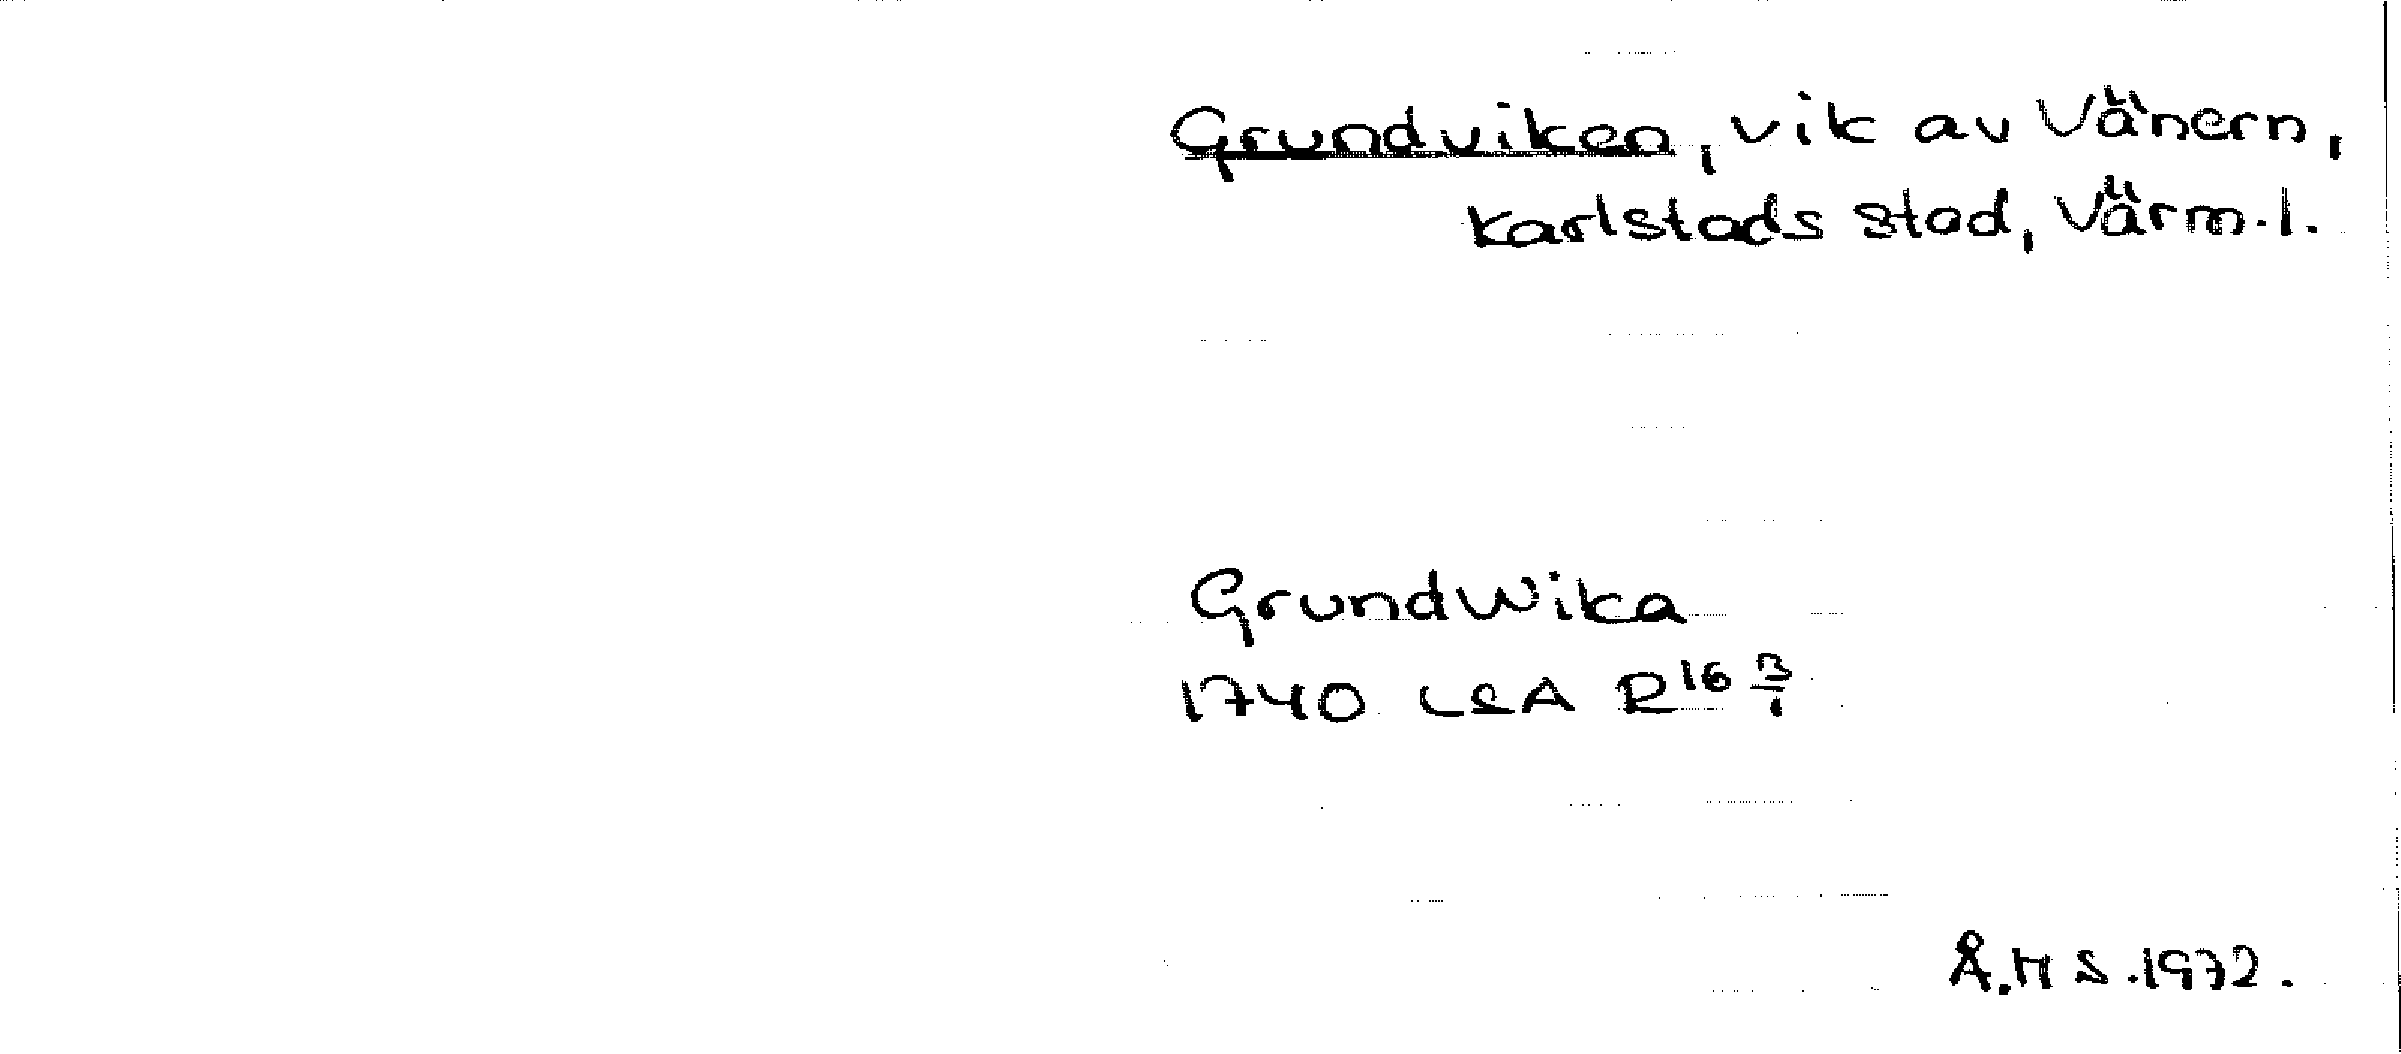 Grundviken, vik av Vänern,
Karlstads stad, Värm.l.
GrundWika
1740 LSA R16 3/1
Å.H S.1972.